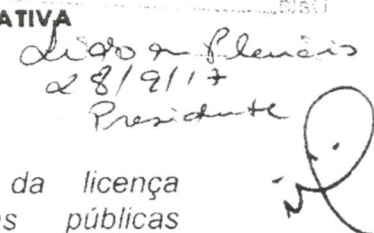 ATIVA
Lido em Plenário
28/9/17
Presidente
da licença
públicas